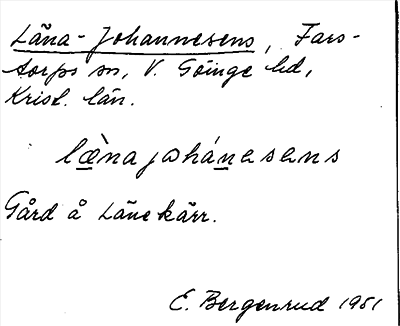 Läna-Johannesens, Fars-
torps sn, V. Göinge hd,
Krist. län.
læ̀najohánesens
Gård å Länekärr.
E. Bergenrud 1951